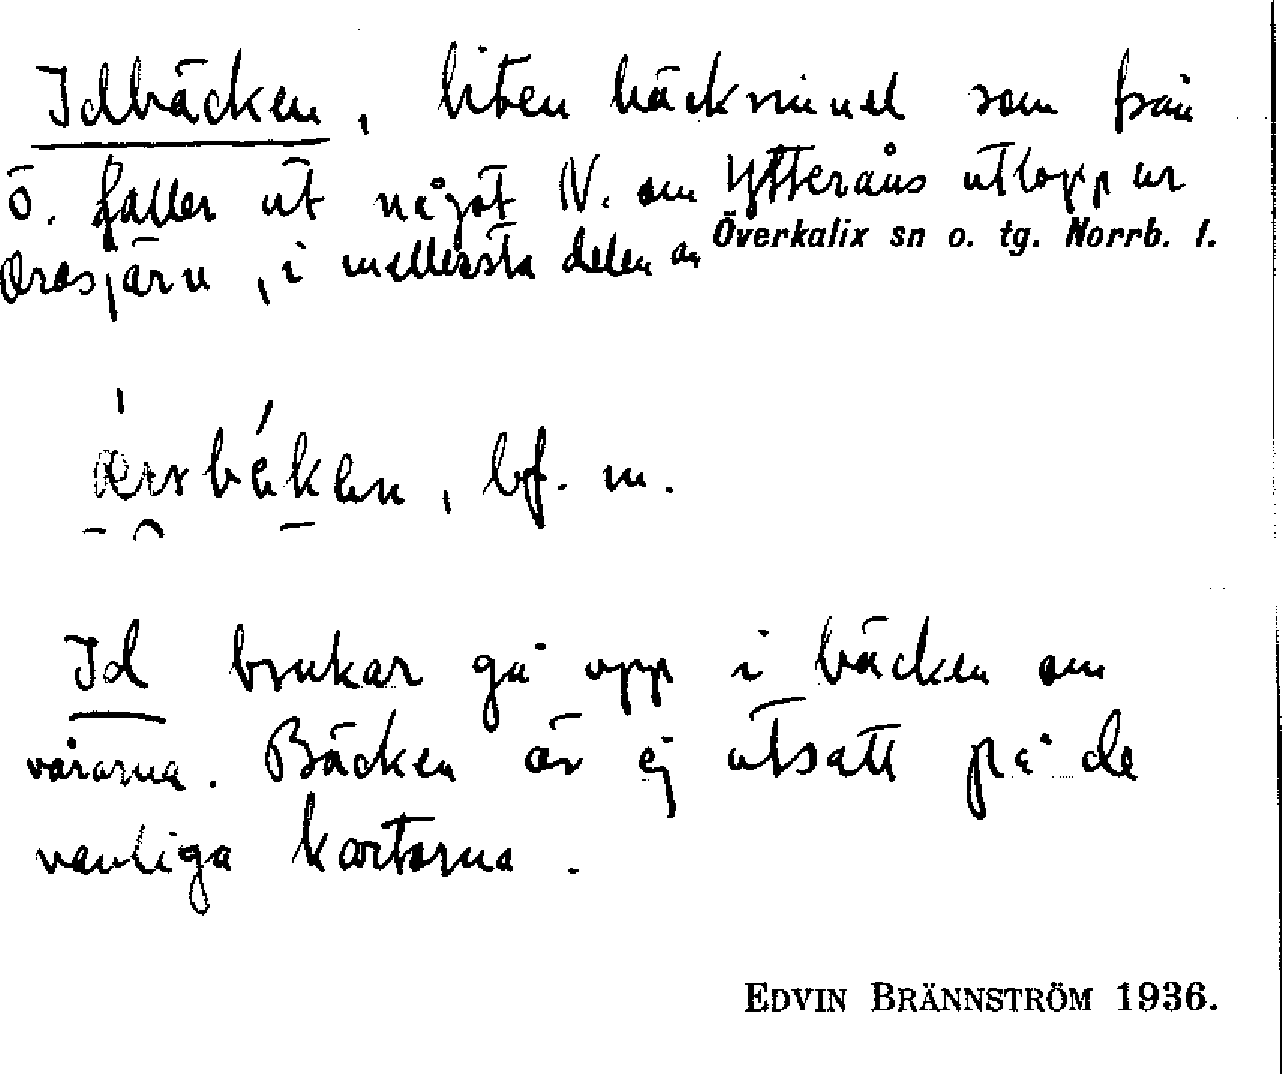 Idbäcken, liten bäckrännel som från
Ö. faller ut något N. om Ytteråns utlopp ur
Överkalix sn o. tg. Norrb. l.
i mellersta delen av
bf. m.
Id brukar gå upp i bäcken om
vårarna. Bäcken är ej utsatt på de
vanliga kartorna.
EDVIN BRÄNNSTRÖM 1936.